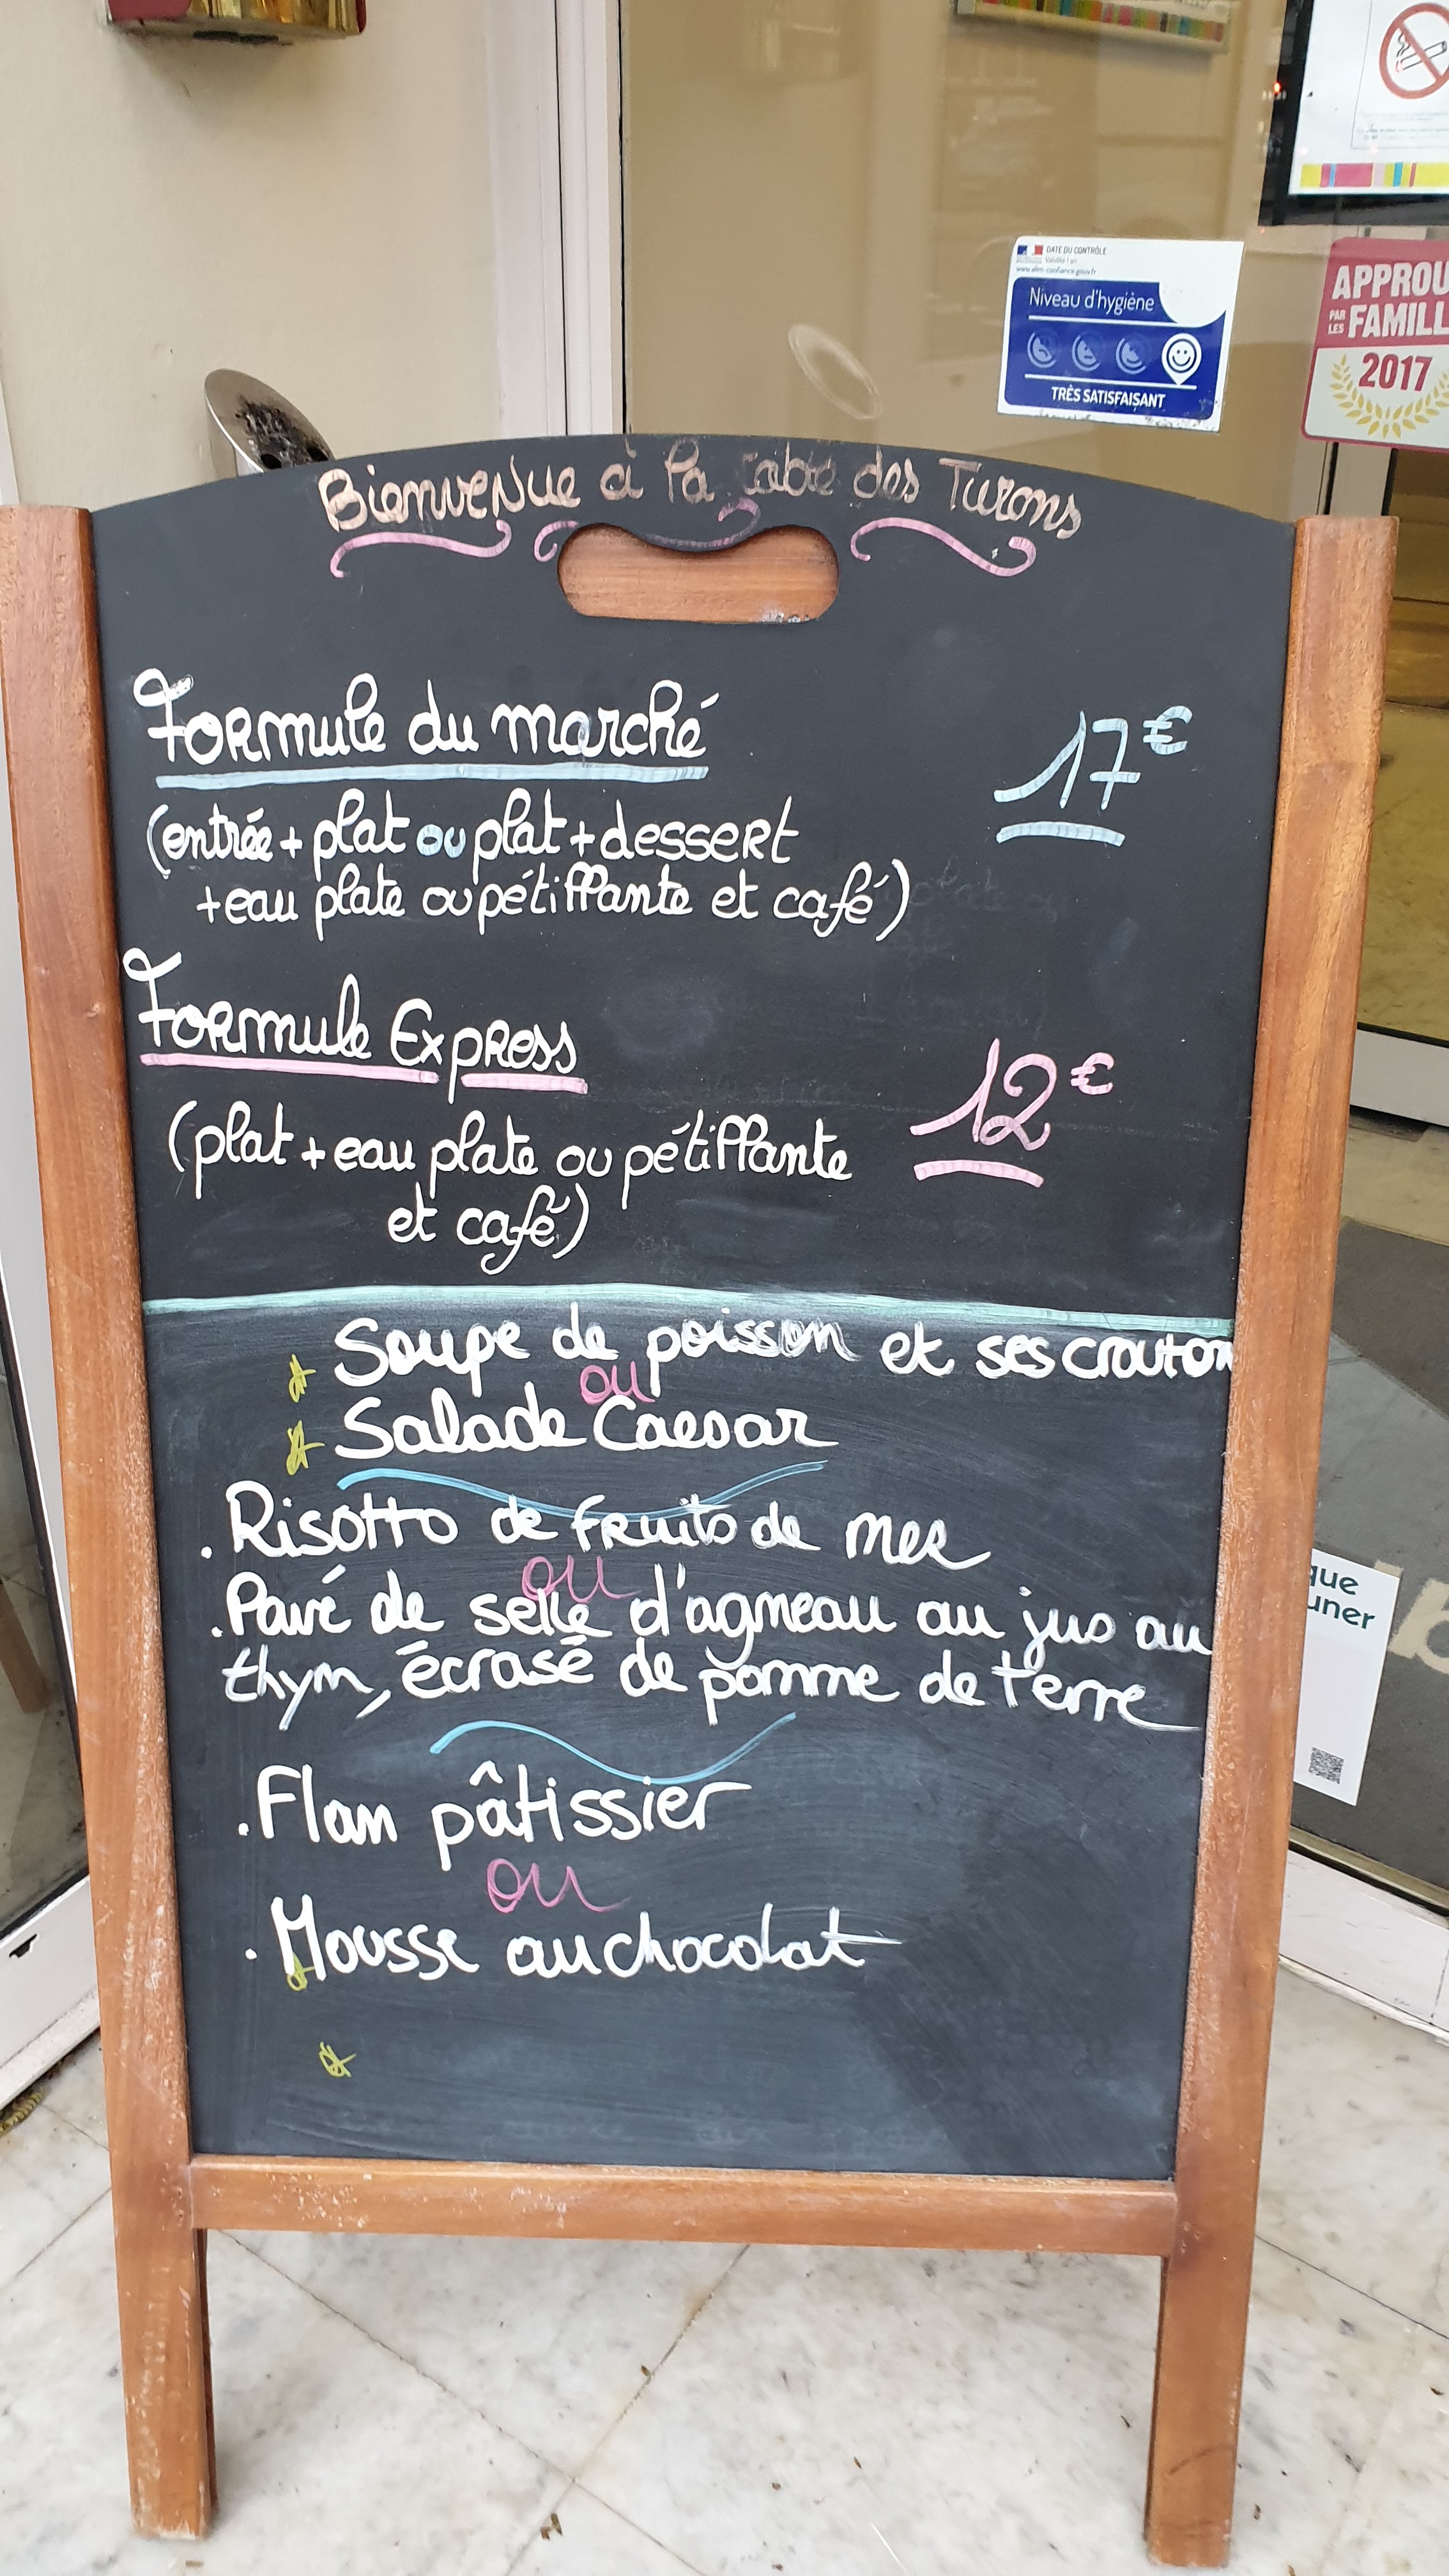 DATE DU CONTRÔLE
Validité 1 an
www.alim-confiance.gouv.fr
Niveau d'hygiène
TRÈS SATISFAISANT
APPROU
PAR LES FAMILL
2017
Bienvenue à la table des Turons
Formule du marché 17€
(entrée + plat ou plat + dessert
+ eau plate ou pétillante et café)
Formule Express 12€
(plat + eau plate ou pétillante
et café)
Soupe de poisson et ses crouton
ou
Salade Caesar
. Risotto de fruits de mer
ou
. Pavé de selle d'agneau au jus au
thym, écrasé de pomme de terre
. Flan pâtissier
ou
. Mousse au chocolat
que
uner